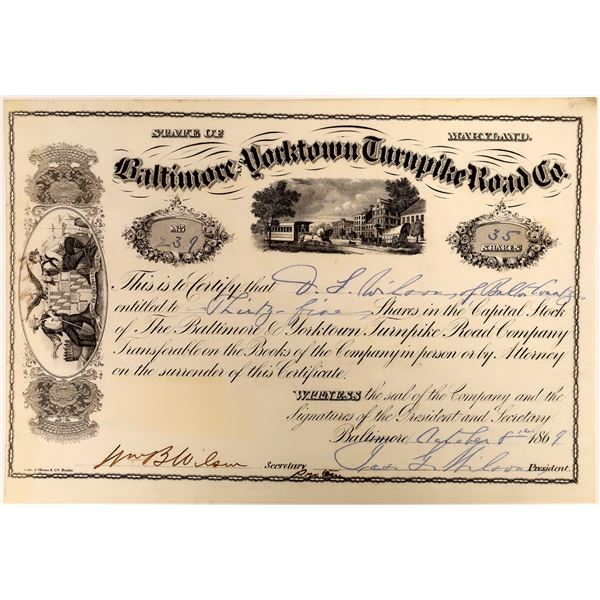 STATE OF MARYLAND.
Baltimore & Yorktown Turnpike Road Co.
No 239
35 SHARES
This is to Certify that D. L. Wilson, of Balto County
entitled to Thirty-five Shares in the Capital Stock
of The Baltimore & Yorktown Turnpike Road Company
Transferable on the Books of the Company in person or by Attorney
on the surrender of this Certificate.
WITNESS the seal of the Company and the
Signatures of the President and Secretary
Baltimore, October 8th 1869
Wm B Wilson Secretary Pro Tem Jas. G. Wilson President.